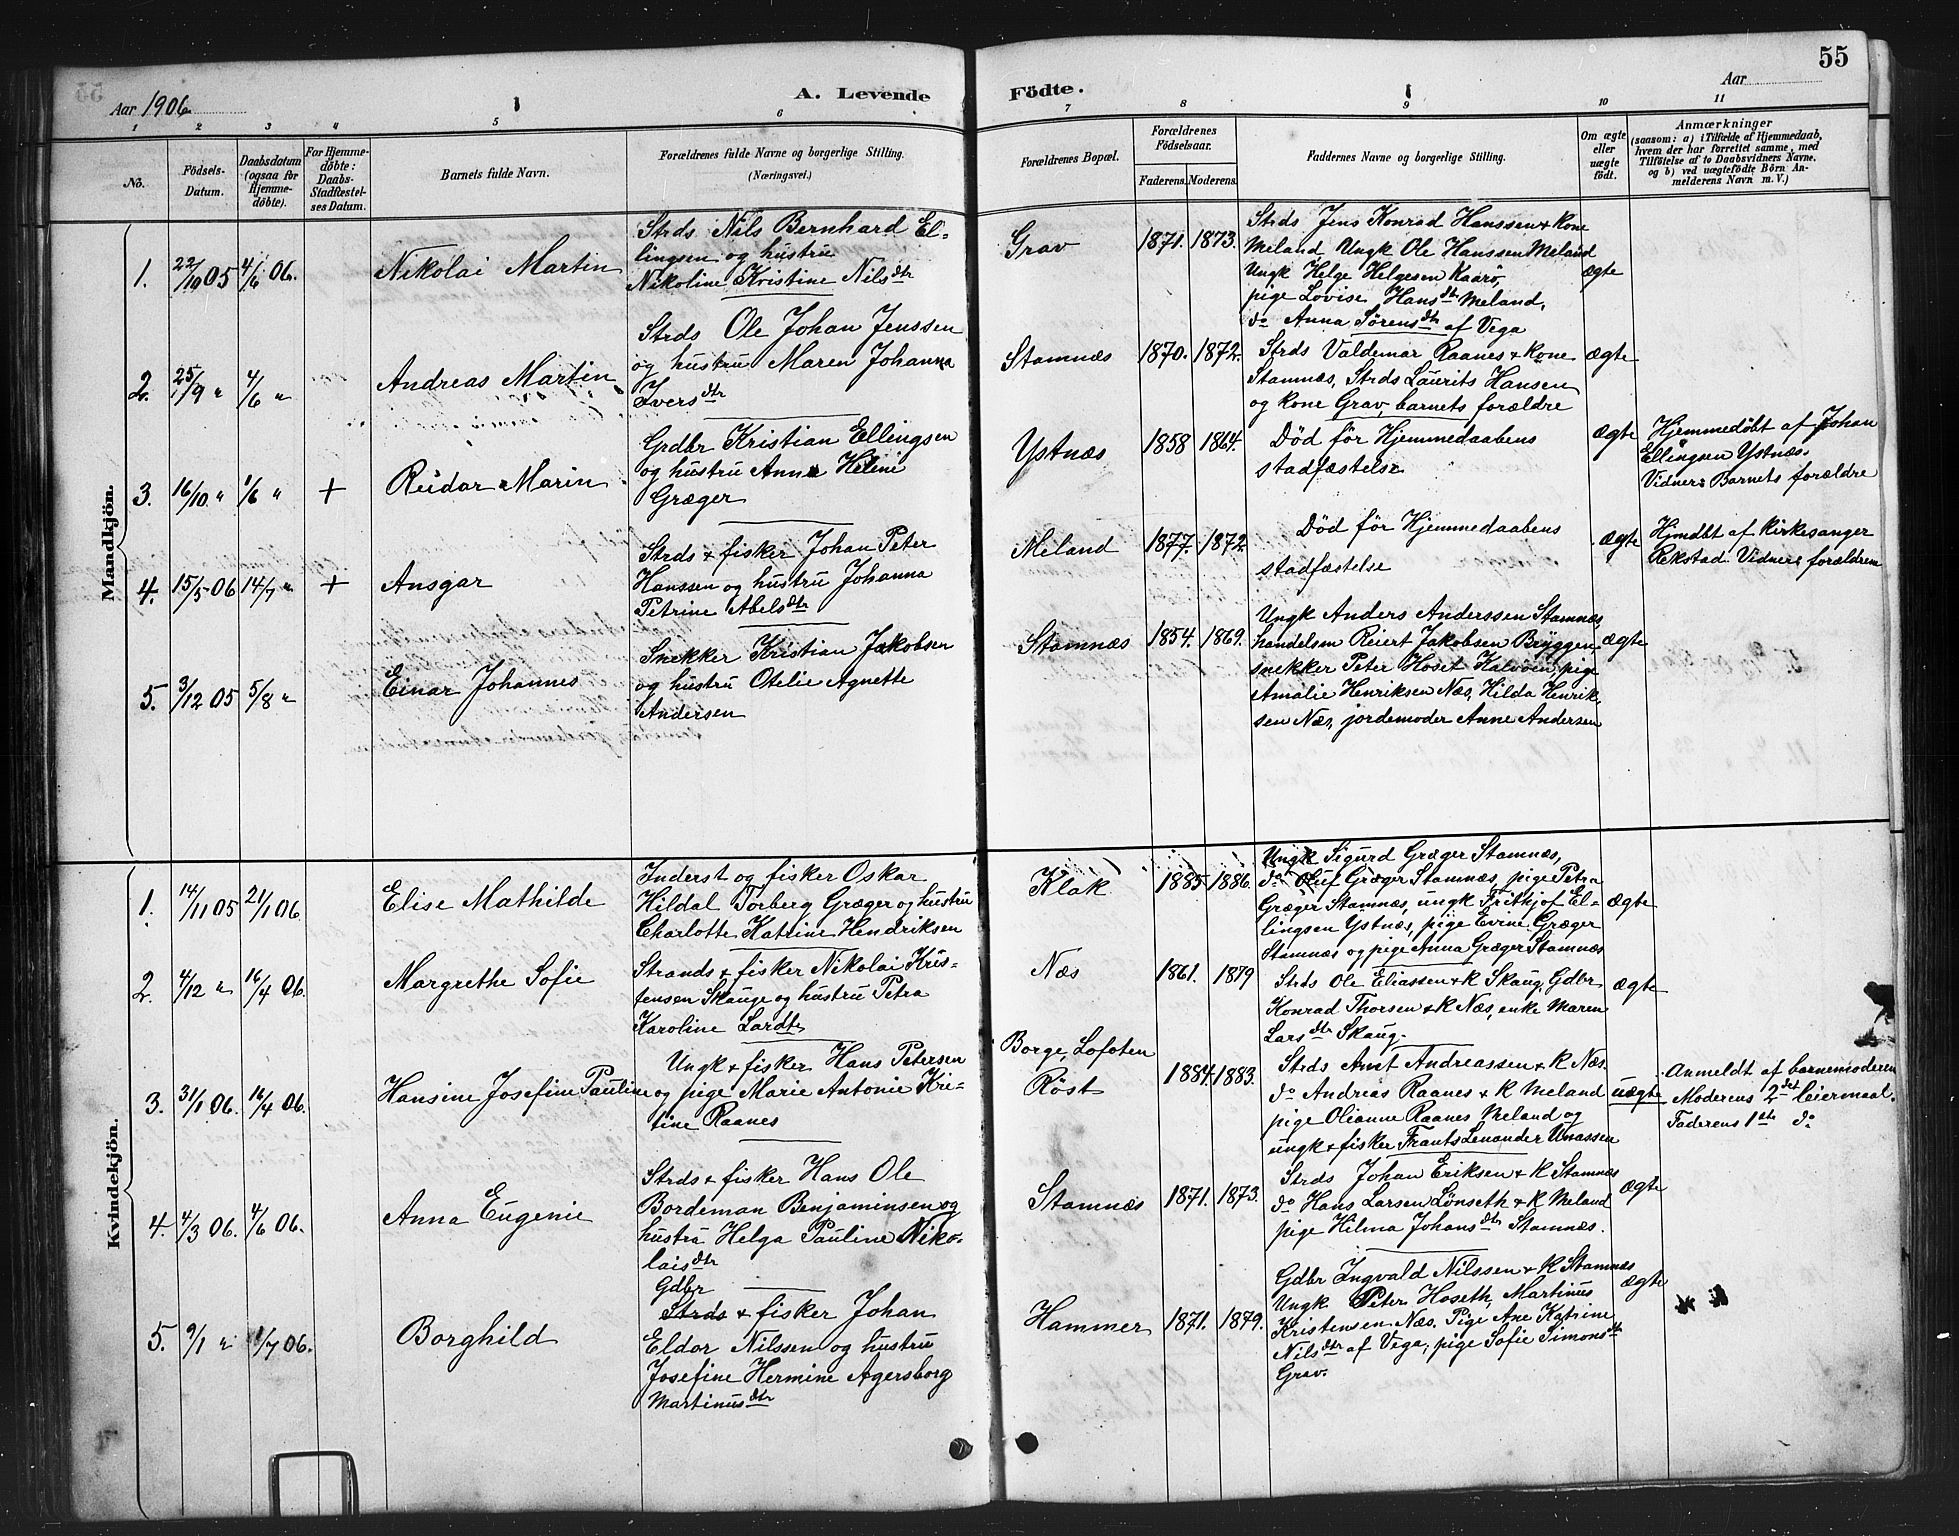 55
Aar 1906
A. Levende Födte.
Aar
1 2 3 4 5 6 7 8 9 10 11
No.
Födsels-
Datum.
Daabsdatum
(ogsaa for
Hjemme-
döbte).
For Hjemme-
döbte:
Daabs-
Stadfæstel-
ses Datum.
Barnets fulde Navn.
Forældrenes fulde Navne og borgerlige Stilling.
(Næringsvei.)
Forældrenes Bopæl.
Forældrenes
Födselsaar.
Faderens. Moderens.
Faddernes Navne og borgerlige Stilling.
Om ægte
eller
uægte
födt.
Anmærkninger
(saasom: a) i Tilfælde af Hjemmedaab,
hvem der har forrettet samme, med
Tilföielse af to Daabsvidners Navne,
og b) ved uægtefödte Börn An-
melderens Navn m. V.)
Mandkjön.
1. 22/10 05 4/6 06. Nikolai Martin
Strds Nils Bernhard El-
lingsen og hustru
Nikoline Kristine Nilsdtr
Grav 1871. 1873.
Strds Jens Konrad Hanssen & Kone
Meland, Ungk Ole Hanssen Meland
Ungk Helge Helgesen Kaarø,
pige Lovise Hansdtr Meland,
do Anna Sørensdtr af Vega
ægte
2. 25/9 " 4/6 " Andreas Martin
Strds Ole Johan Jenssen
og hustru Maren Johanna
Iversdtr
Stamnæs 1870. 1872.
Strds Valdemar Raanes & kone
Stamnæs, Strds Laurits Hansen
og kone Grav, barnets forældre
ægte
3. 16/10 " 1/6 " + Reidar Marin
Grdbr Kristian Ellingsen
og hustru Anna Heline
Græger
Ystnæs 1858 1864.
Død før Hjemmedaabens
stadfæstelse
ægte
Hjemmedøbt af Johan
Ellingsen Ystnæs.
Vidner: Barnets forældre
4. 15/5 06 14/7 " + Ansgar
Strds & fisker Johan Peter
Hanssen og hustru Johanna
Petrine Abelsdtr
Meland 1877. 1872
Død før Hjemmedaabens
stadfæstelse
ægte
Hjmdbt af Kirkesanger
Rekstad. Vidner: forældrene
5. 3/12 05 5/8 " Einar Johannes
Snekker Kristian Jakobsen
og hustru Otelie Agnette
Andersen
Stamnæs 1854. 1869.
Ungk Anders Anderssen Stamnæs,
handelsm Reiert Jakobsen Bryggen
snekker Peter Hoset Kalvøen, pige
Amalie Henriksen Næs, Hilda Henrik-
sen Næs, jordemoder Anne Andersen
ægte
Kvindekjön.
1. 14/11 05 21/1 06. Elise Mathilde
Inderst og fisker Oskar
Hildal Torberg Græger og hustru
Charlotte Katrine Hendriksen
Klak 1885 1886.
Ungk Sigurd Græger Stamnæs,
do Oluf Græger Stamnæs, pige Petra
Græger Stamnæs, ungk Frithjof El-
lingsen Ystnæs, pige Evine Græger
Stamnæs og pige Anna Græger Stamnæs
ægte
2. 4/12 " 16/4 06. Margrethe Sofie
Strands & fisker Nikolai Kris-
tensen Skauge og hustru Petra
Karoline Larsdtr
Næs 1861. 1879
Strds Ole Eliassen & K Skaug, Gdbr
Konrad Thorsen & K Næs, enke Maren
Larsdtr Skaug.
ægte
3. 31/1 06. 16/4 06. Hansine Josefine Pauline
Ungk & fisker Hans Petersen
og pige Marie Antonie Kris-
tine Raanes
Borge, Lofoten
Røst 1884. 1883.
Strds Arnt Andreassen & K Næs.
do Andreas Raanes & K Meland
pige Olianne Raanes Meland og
ungk & fisker Frants Lenander Unassen
uægte
Anmeldt af barnemoderen
Moderens 2det leiermaal.
Faderens 1ste do
4. 4/3 06. 4/6 06. Anna Eugenie
Strds & fisker Hans Ole
Bordeman Benjaminsen og
hustru Helga Pauline Niko-
laisdtr
Stamnæs 1871. 1873.
Strds Johan Eriksen & K Stamnæs
do Hans Larsen Lønseth & K Meland
pige Hilma Johansdtr Stamnæs.
ægte
5. 9/1 " 1/7 06. Borghild
Gdbr
Strds & fisker Johan
Eldor Nilssen og hustru
Josefine Hermine Agersborg
Martinusdtr
Hammer 1871. 1879.
Gdbr Ingvald Nilssen & K Stamnæs
Ungk Peter Hoseth, Martinus
Kristensen Næs, Pige Ane Katrine
Nilsdtr af Vega, pige Sofie Simonsdtr
Grav.
ægte